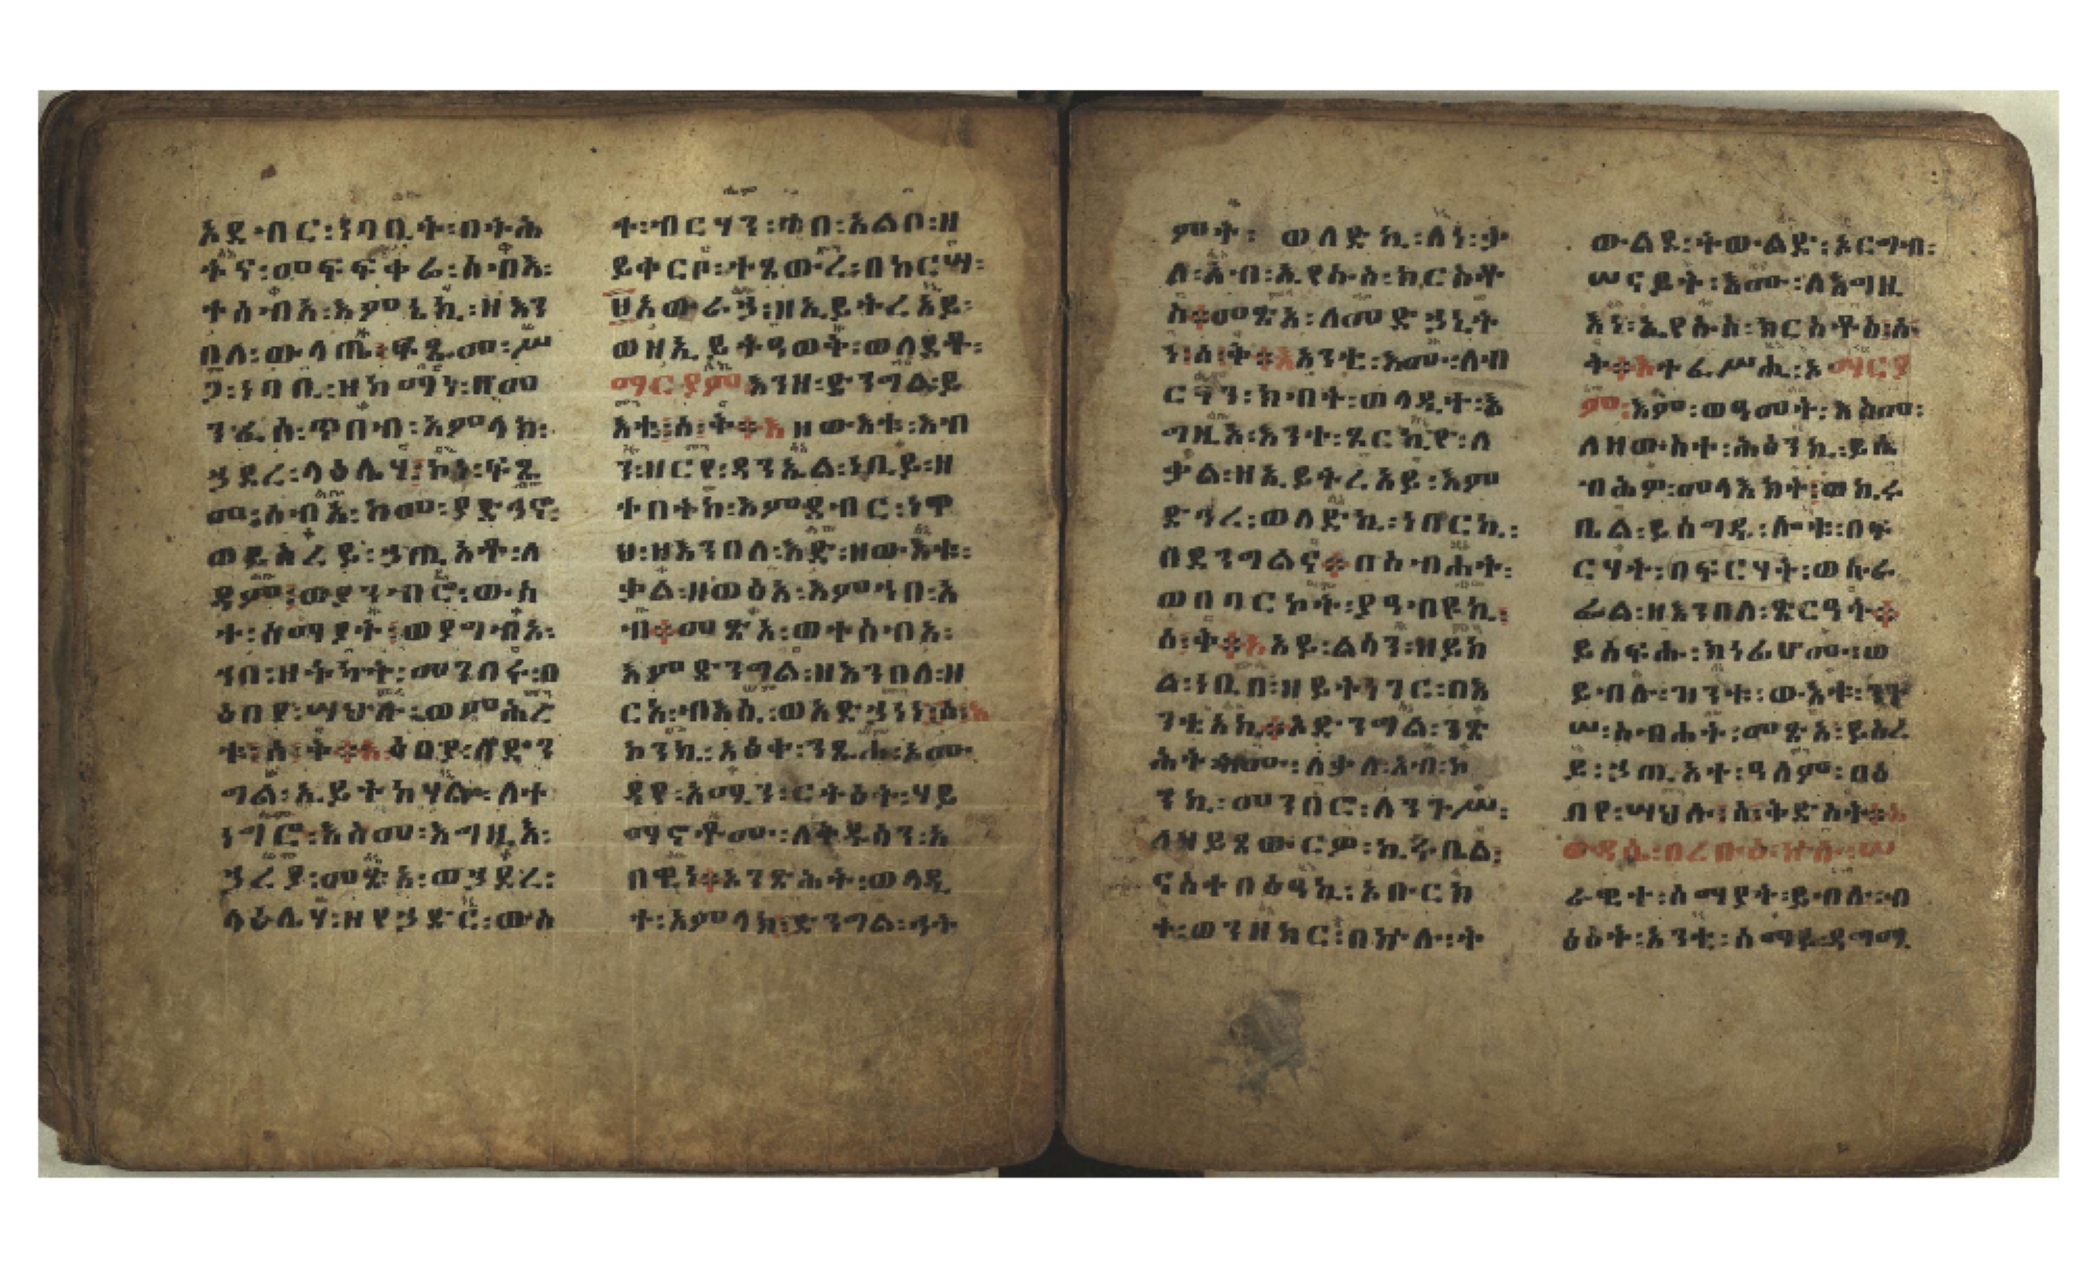 እደ፡ብር፡ነባቢት፡በትሕ
ትና፡መፍፍቀሬ፡ሰብእ፡
ተሰብአ፡እምኔኪ፡ዘእን
በለ፡ውላጤ፡ፍጹመ፡ሥ
ጋ፡ነባቢ፡ዘከማነ፡ዘመ
ንፈሰ፡ጥበብ፡አምላክ፡
ኃደረ፡ላዕሌሃ፡ኮነ፡ፍጹ
መ፡ሰብአ፡ከመ፡ያድኅኖ፡
ወይስረይ፡ኃጢአቶ፡ለ
ዳም፡ወያንብሮ፡ውስ
ተ፡ሰማያት፡ወያግብኦ፡
ኀበ፡ዘትካት፡መንበሩ፡በ
ዕበየ፡ሣህሉ፡ወምሕረ
ቱ፡ሰ፡ት፡፡እ፡ዕበያ፡ለድን
ግል፡ኢይትከሃል፡ለተ
ነግሮ፡እስመ፡እግዚአ፡
ኃረያ፡መጽአ፡ወኃደረ፡
ላዕሌሃ፡ዘየኃድር፡ውስ
ተ፡ብርሃን፡ኀበ፡አልቦ፡ዘ
ይቀርቦ፡ተጸውረ፡በከርሣ፡
፱አውራኃ፡ዘኢይትረአይ፡
ወዘኢይትዓወቅ፡ወለደቶ፡
ማርያም፡እንዘ፡ድንግል፡ይ
እቲ፡ሰ፡ት፡፡እ፡ዘውእቱ፡እብ
ን፡ዘርየ፡ዳንኤል፡ነቢይ፡ዘ
ተበትከ፡እምደብር፡ነዋ
ኅ፡ዘእንበለ፡እድ፡ዘውእቱ፡
ቃል፡ዘወፅአ፡እምኀበ፡አ
ብ፡መጽአ፡ወተሰብአ፡
እምድንግል፡ዘእንበለ፡ዘ
ርአ፡ብእሲ፡ወአድኃነነ፡ሰ፡እ
ኮንኪ፡አዕፁቀ፡ንጹሐ፡እሙ
ዳየ፡አሚን፡ርትዕት፡ሃይ
ማኖቶሙ፡ለቅዱሳን፡አ
በዊነ፡ኦንጽሕት፡ወላዲ
ተ፡አምላክ፡ድንግል፡ኅት
ምት፡ወለድኪ፡ለነ፡ቃ
ለ፡አብ፡ኢየሱስ፡ክርስቶ
ስ፡መጽአ፡ለመድኃኒት
ነ፡ሰ፡ት፡፡እ፡አንቲ፡እሙ፡ለብ
ርሃን፡ክብርት፡ወላዲተ፡እ
ግዚእ፡እንተ፡ጾርኪዮ፡ለ
ቃል፡ዘኢይትረአይ፡እም
ድኅረ፡ወለድኪ፡ነበርኪ፡
በድንግልና፡በስብሐት፡
ወበባርኮት፡ያዓብዩኪ፡
ሰ፡ት፡፡እ፡አይ፡ልሳን፡ዘይክ
ል፡ነቢበ፡ዘይትነገር፡በእ
ንቲአኪ፡ኦድንግል፡ንጽ
ሕት፡እሙ፡ለቃለ፡አብ፡ኮ
ንኪ፡መንበሮ፡ለንጉሥ፡
ለዘይጸውርዎ፡ኪሩቤል፡
ናስተበፅዓኪ፡ኦቡርክ
ት፡ወንዘክር፡በኵሉ፡ት
ውልደ፡ትውልድ፡ኦርግብ፡
ሠናይት፡እሙ፡ለእግዚ
እነ፡ኢየሱስ፡ክርስቶስ፡ሰ፡
ት፡፡እ፡ተፈሥሒ፡ኦማርያ
ም፡እም፡ወዓመት፡እስመ፡
ለዘውስተ፡ሕፅንኪ፡ይሴ
ብሕዎ፡መላእክት፡ወኪሩ
ቤል፡ይሰግዱ፡ሎቱ፡በፍ
ርሃት፡በፍርሃት፡ወሱራ
ፌል፡ዘእንበለ፡ጽርዓት፡
ይሰፍሑ፡ክነፊሆሙ፡ወ
ይብሉ፡ዝንቱ፡ውእቱ፡ንጉ
ሠ፡ስብሐት፡መጽአ፡ይስረ
ይ፡ኃጢአተ፡ዓለም፡በዕ
በየ፡ሣህሉ፡ሰ፡ቅድስት፡እ
ውዳሴ፡በረቡዕ፡ኵሉ፡ሠ
ራዊተ፡ሰማያት፡ይብሉ፡ብ
ፅዕት፡አንቲ፡ሰማይ፡ዳግሚ